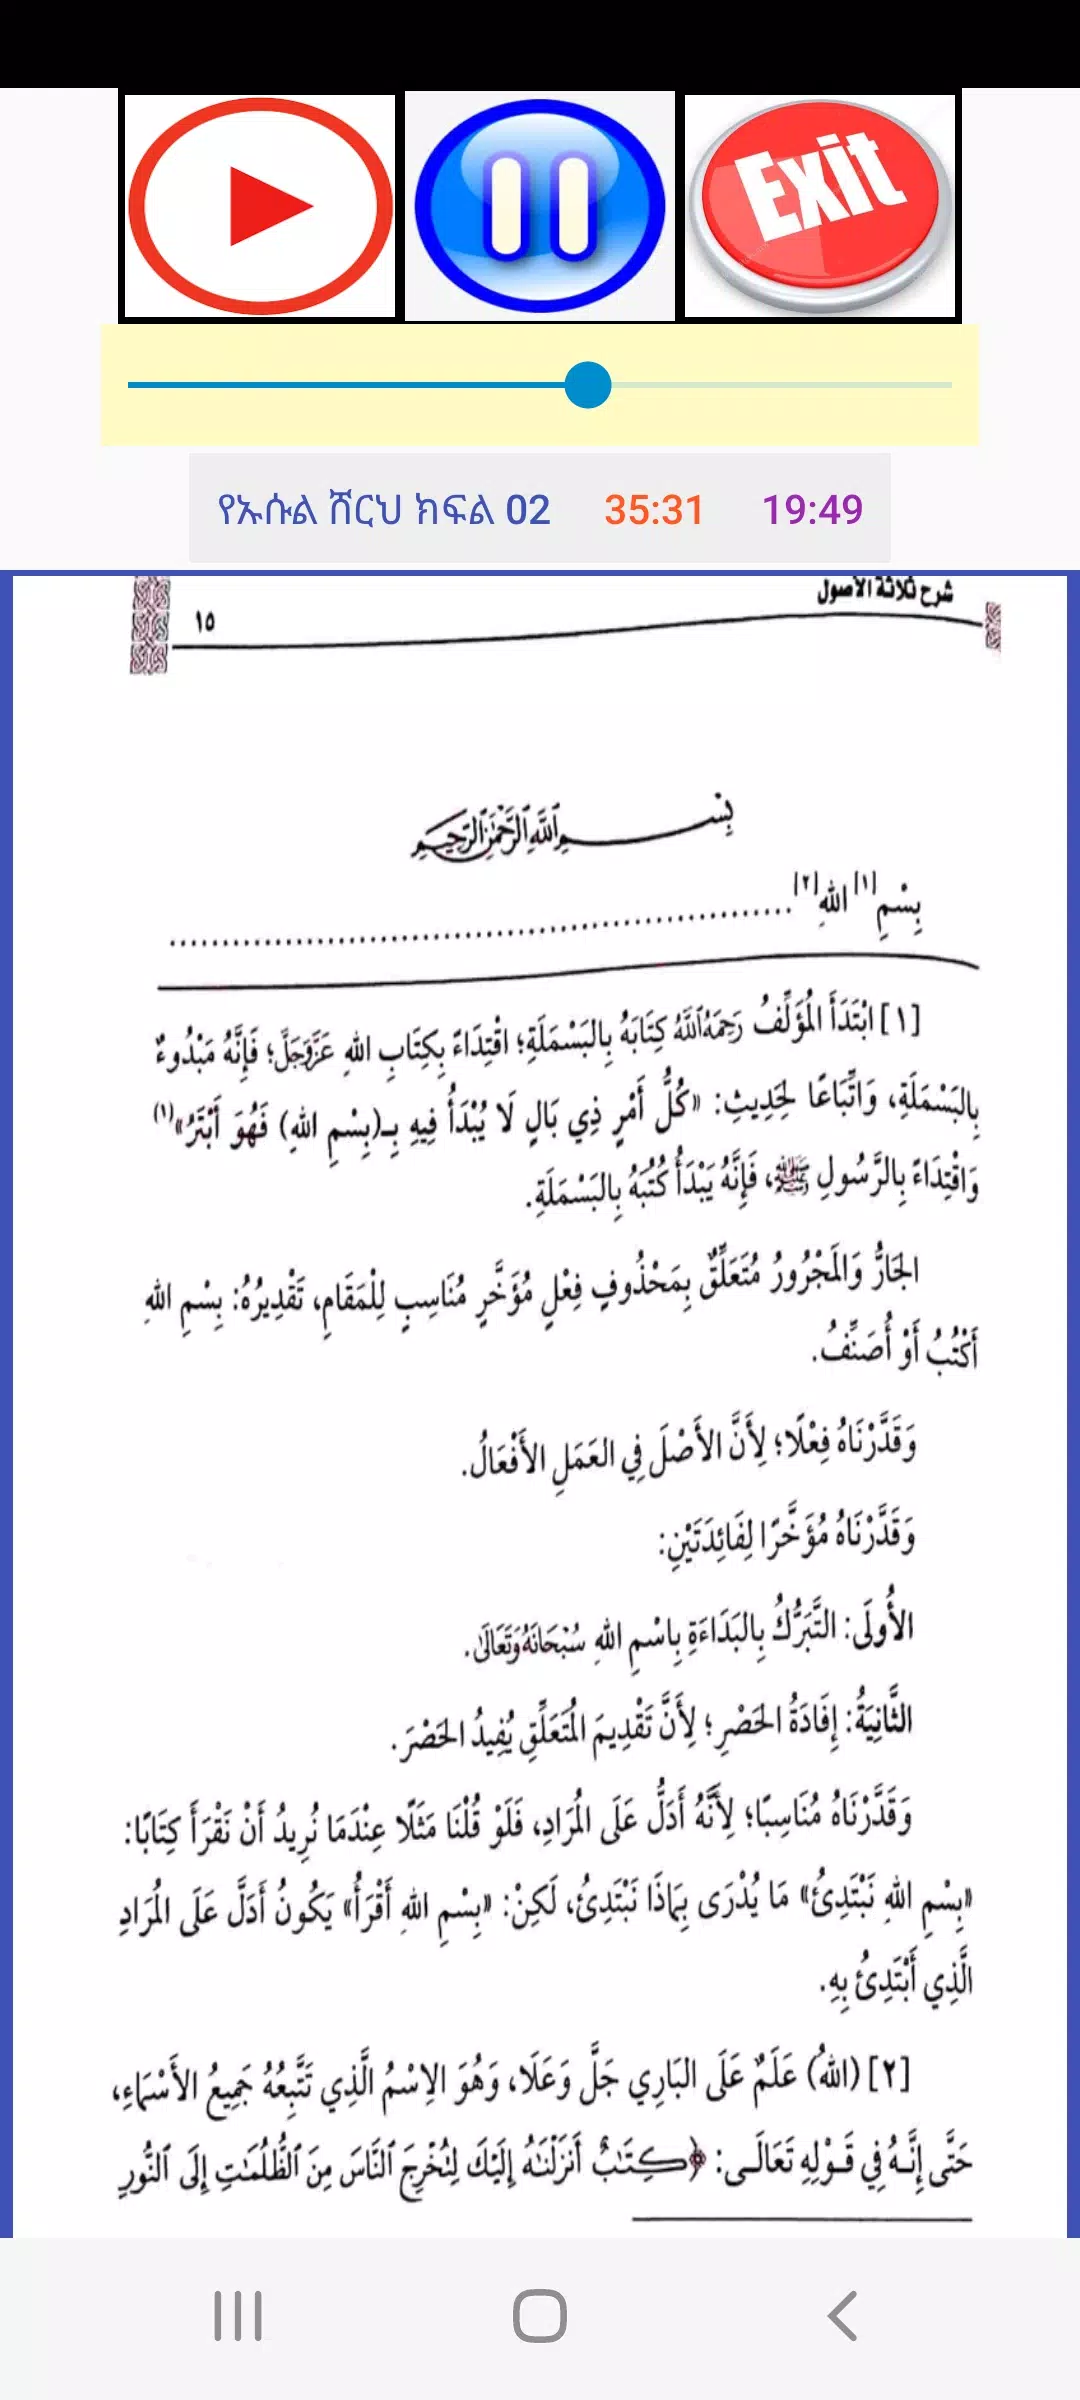 Exit
የኡሱል ሸርህ ክፍል 02 35:31 19:49
شرح ثلاثة الأصول
١٥
بِسْمِ اللَّهِ الرَّحْمَٰنِ الرَّحِيمِ
بِسْمِ[١] اللهِ[٢]................................................................
[١] ابْتَدَأَ الْمُؤَلِّفُ رَحِمَهُ اللَّهُ كِتَابَهُ بِالبَسْمَلَةِ؛ اقْتِدَاءً بِكِتَابِ اللهِ عَزَّوَجَلَّ؛ فَإِنَّهُ مَبْدُوءٌ
بِالبَسْمَلَةِ، وَاتِّبَاعًا لِحَدِيثِ: «كُلُّ أَمْرٍ ذِي بَالٍ لَا يُبْدَأُ فِيهِ بِـ(بِسْمِ اللهِ) فَهُوَ أَبْتَرُ»(١)
وَاقْتِدَاءً بِالرَّسُولِ ﷺ، فَإِنَّهُ يَبْدَأُ كُتُبَهُ بِالبَسْمَلَةِ.
الجَارُّ وَالمَجْرُورُ مُتَعَلِّقٌ بِمَحْذُوفٍ فِعْلٍ مُؤَخَّرٍ مُنَاسِبٍ لِلْمَقَامِ، تَقْدِيرُهُ: بِسْمِ اللهِ
أَكْتُبُ أَوْ أُصَنِّفُ.
وَقَدَّرْنَاهُ فِعْلًا؛ لِأَنَّ الأَصْلَ فِي العَمَلِ الأَفْعَالُ.
وَقَدَّرْنَاهُ مُؤَخَّرًا لِفَائِدَتَيْنِ:
الأُولَى: التَّبَرُّكُ بِالبَدَاءَةِ بِاسْمِ اللهِ سُبْحَانَهُ وَتَعَالَى.
الثَّانِيَةُ: إِفَادَةُ الحَصْرِ؛ لِأَنَّ تَقْدِيمَ المُتَعَلِّقِ يُفِيدُ الحَصْرَ.
وَقَدَّرْنَاهُ مُنَاسِبًا؛ لِأَنَّهُ أَدَلُّ عَلَى المُرَادِ، فَلَوْ قُلْنَا مَثَلًا عِنْدَمَا نُرِيدُ أَنْ نَقْرَأَ كِتَابًا:
«بِسْمِ اللهِ نَبْتَدِئُ» مَا يُدْرَى بِمَاذَا نَبْتَدِئُ، لَكِنْ: «بِسْمِ اللهِ أَقْرَأُ» يَكُونُ أَدَلَّ عَلَى المُرَادِ
الَّذِي أَبْتَدِئُ بِهِ.
[٢] (اللهُ) عَلَمٌ عَلَى البَارِي جَلَّ وَعَلَا، وَهُوَ الِاسْمُ الَّذِي تَتْبَعُهُ جَمِيعُ الأَسْمَاءِ،
حَتَّى إِنَّهُ فِي قَوْلِهِ تَعَالَى: ﴿كِتَٰبٌ أَنزَلْنَٰهُ إِلَيْكَ لِتُخْرِجَ ٱلنَّاسَ مِنَ ٱلظُّلُمَٰتِ إِلَى ٱلنُّورِ